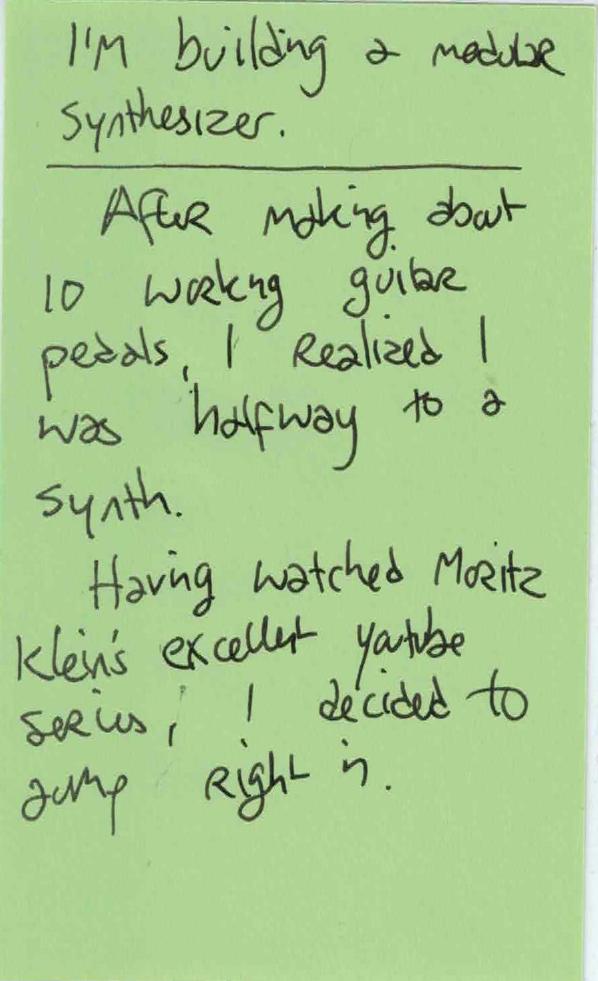 I'M building a modular
synthesizer.
After making about
10 working guitar
pedals, I Realized I
was halfway to a
synth.
Having watched Moritz
Klein's excellent youtube
series, I decided to
jump right in.